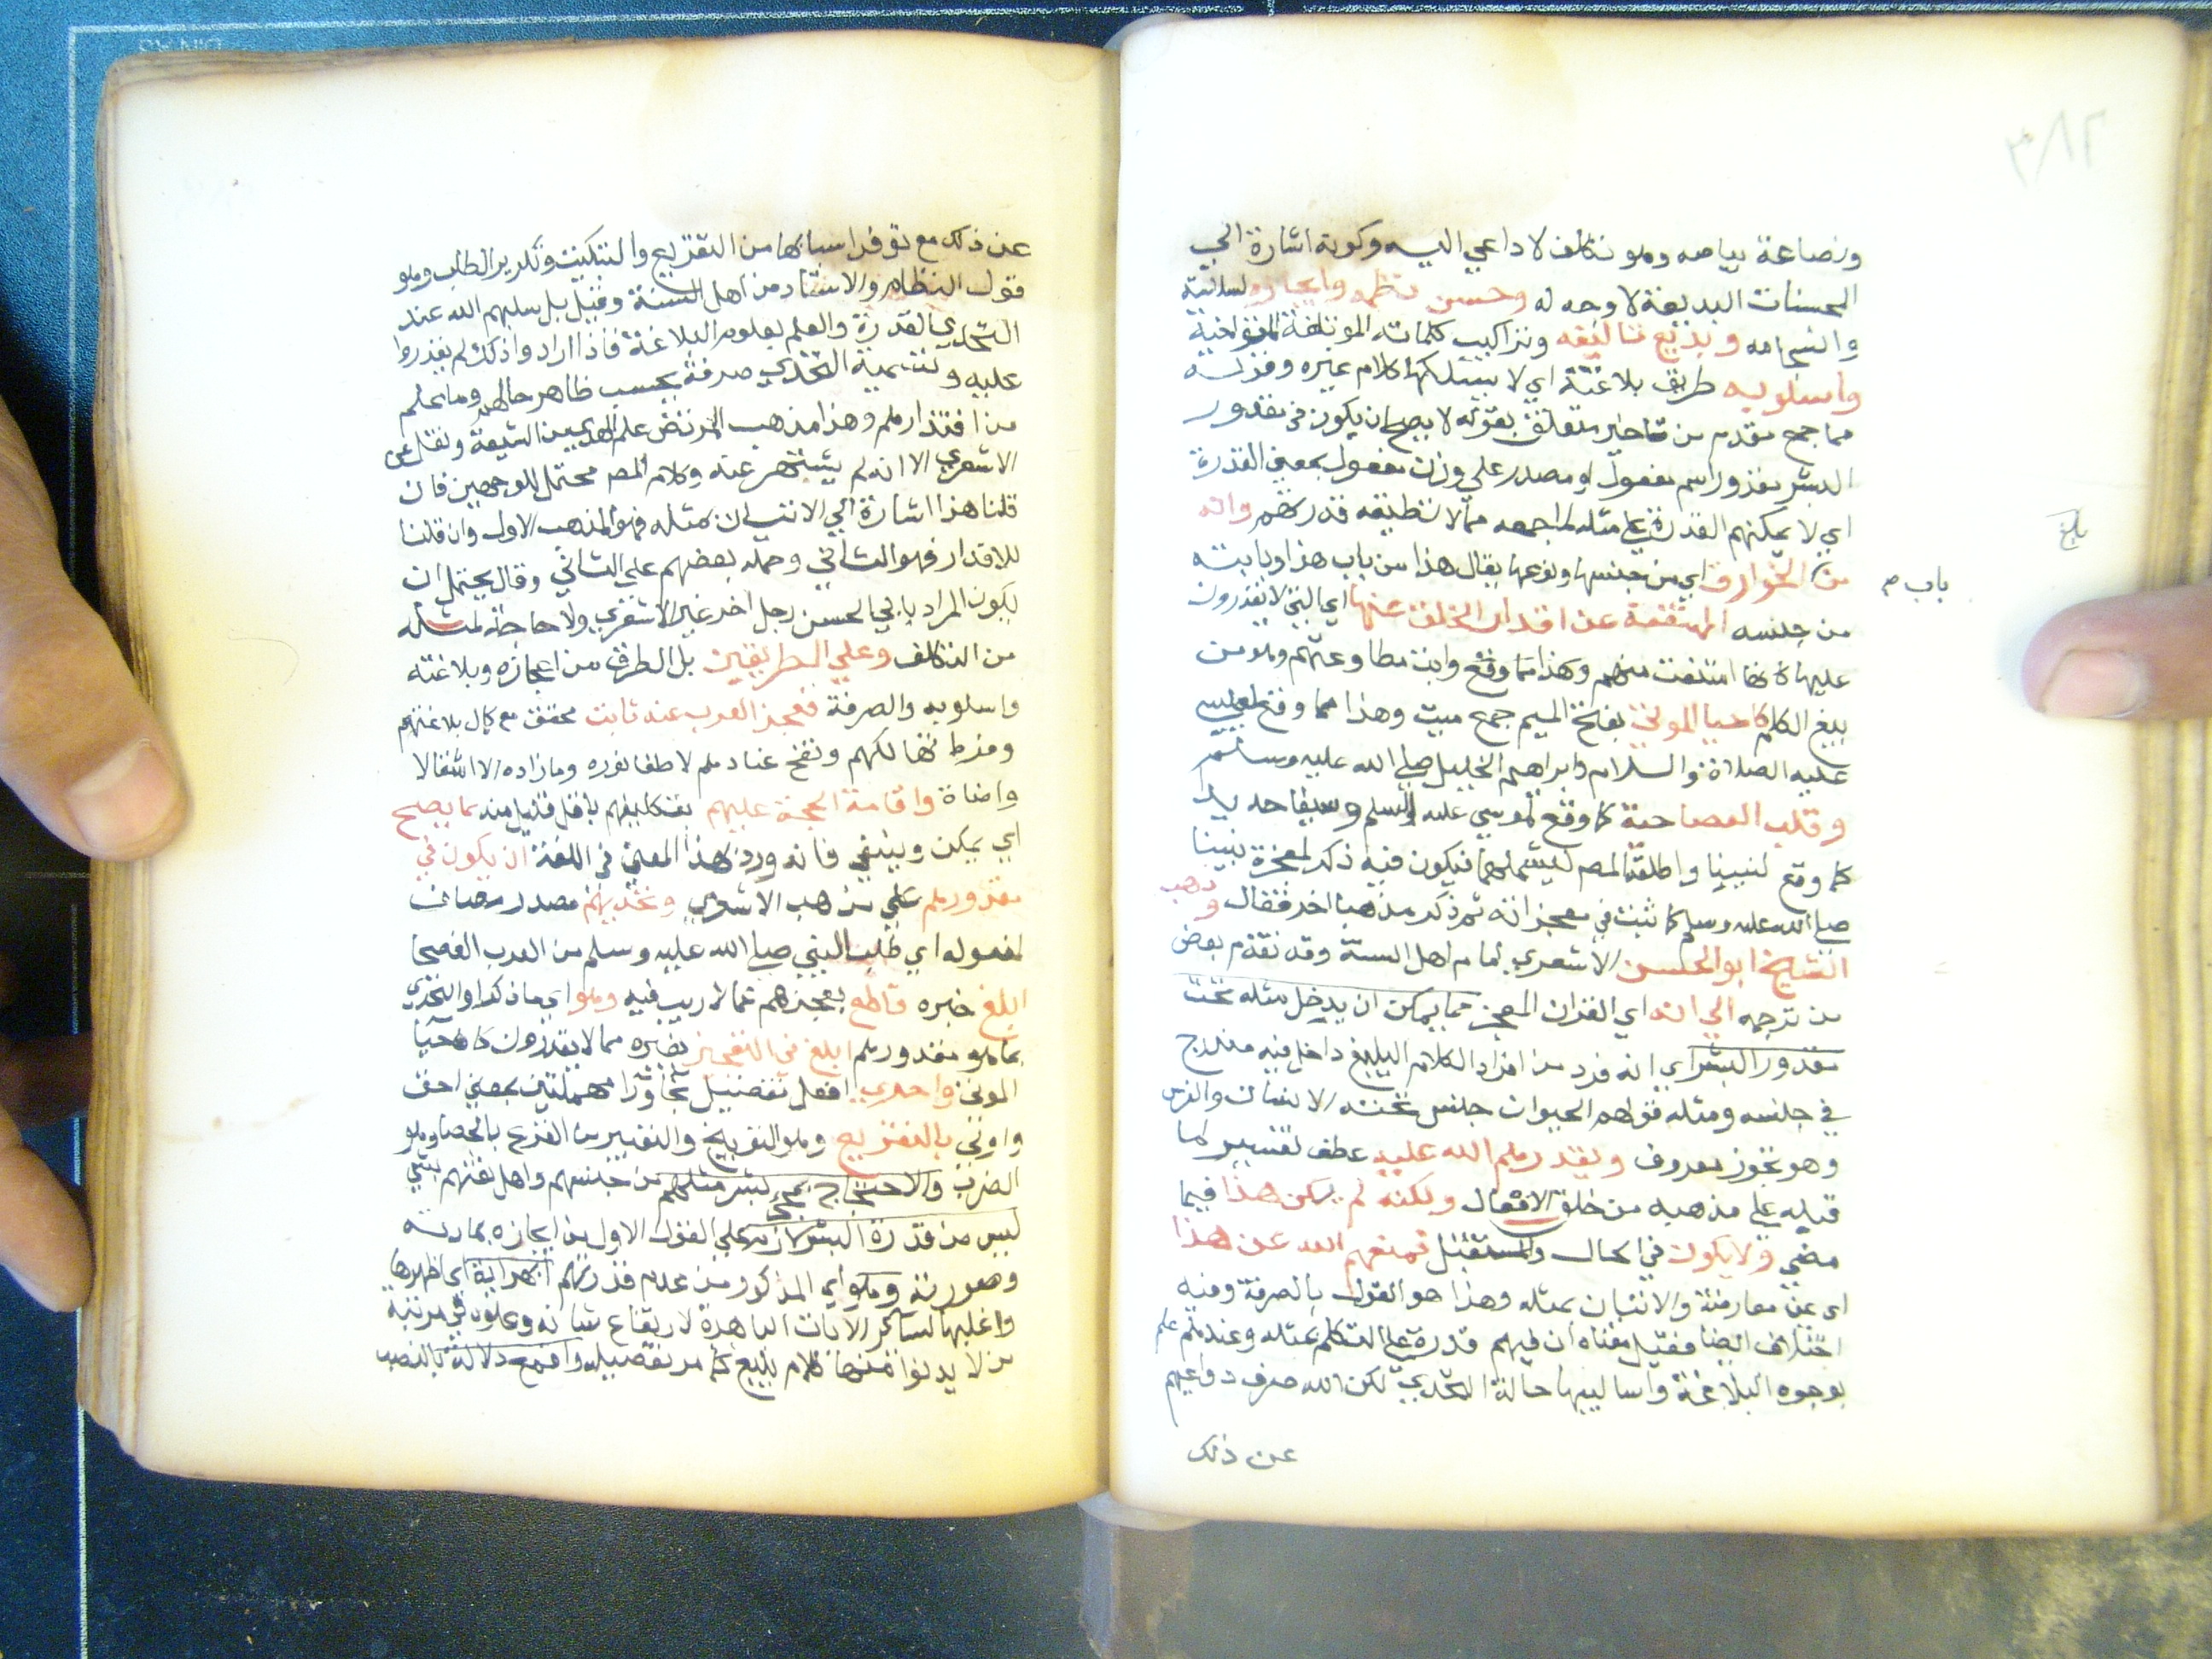 ٣٨٢
ونصاعة بياضه وهو تكلف لا داعي اليه وكونه اشارة الى
المحسنات البديعة لا وجه له وحسن نظمه وايجازه لسلاسته
وانسجامه وبديع تاليفه وتراكيب كلماته المؤتلفة المتواخية
واسلوبه طريق بلاغته اي لا يسلكها كلام غيره وقوله
مما جمع مقدم من تاخير متعلق بقوله لا يصح ان يكون في مقدور
البشر مقدور اسم مفعول او مصدر على وزن مفعول بمعنى القدرة
اي لا يمكنهم القدرة على مثله لما جمعه مما لا تطيقه قدرتهم وانه
من الخوارق اي من جنسها ونوعها يقال هذا من باب هذا وبابته
باب م
بلغ
من جنسه الممتنعة عن اقدار الخلق عنها اي التي لا يقدرون
عليها لانها امتنعت منهم وهذا مما وقع وابت مطاوعتهم وهو من
بليغ الكلام كاحيا الموتى بفتح الميم جمع ميت وهذا مما وقع لعيسى
عليه الصلاة والسلام وابراهيم الخليل صلى الله عليه وسلم
وقلب العصا حية كما وقع لموسى عليه السلم وتسبيح الحصا
كما وقع لنبينا واطلقه المص ليشملهما فيكون فيه ذكر لمعجزة نبينا
صلى الله عليه وسلم كما ثبت في معجزاته ثم ذكر مذهبا اخر فقال وذهب
الشيخ ابو الحسن الاشعري امام اهل السنة وقد تقدم بعض
من ترجمه الى انه اي القران المعجز مما يمكن ان يدخل مثله تحت
مقدور البشر اي انه فرد من افراد الكلام البليغ داخل فيه مندرج
في جنسه ومثله قولهم الحيوان جنس تحته الانسان والفرس
وهو تجوز معروف ويقدرهم الله عليه عطف تفسير لما
قبله على مذهبه من خلق الافعال ولكنه لم يكن هذا فيما
مضى ولا يكون في الحال والمستقبل فمنعهم الله عن هذا
اي عن معارضته والاتيان بمثله وهذا هو القول بالصرفة وفيه
اختلاف ايضا فقيل معناه ان فيهم قدرة على التكلم بمثله وعندهم علم
بوجوه البلاغة واساليبها حالة التحدي لكن الله صرف دواعيهم
عن ذلك
عن ذلك مع توفر اسبابها من التقريع والتبكيت وتكرير الطلب وهو
قول النظام والاستاد من اهل السنة وقيل بل سلبهم الله عند
التحدي القدرة والعلم بعلوم البلاغة فاذا ارادوا ذلك لم يقدروا
عليه وتسمية التحدي صرفة بحسب ظاهر حالهم وما يعلم
من اقتدارهم وهذا مذهب المرتضى علم الهدى من الشيعة ونقل عن
الاشعري الا انه لم يشتهر عنه وكلام المص محتمل للوجهين فان
قلنا هذا اشارة الى الاتيان بمثله فهو المذهب الاول وان قلنا
للاقدار فهو الثاني وحمله بعضهم على الثاني وقال يحتمل ان
يكون المراد بابي الحسن رجل اخر غير الاشعري ولا حاجة لمثله
من التكلف وعلى الطريقين بل الطرق من اعجازه وبلاغته
واسلوبه والصرفة فعجز العرب عنه ثابت محقق مع كمال بلاغتهم
وفرط تهالكهم ونفخ عنادهم لاطفا نوره وما زاده الا اشتعالا
واضاة واقامة الحجة عليهم بتكليفهم باقل قليل منه بما يصح
اي يمكن وينبغي فانه ورد بهذا المعنى في اللغة ان يكون في
مقدورهم على مذهب الاشعري وتحديهم مصدر مضاف
لمفعوله اي طلب النبي صلى الله عليه وسلم من العرب الفصحا
ابلغ خبره قاطع بعجزهم مما لا ريب فيه وهو اي ما ذكر او التحدي
بما هو مقدورهم ابلغ في التعجيز بغيره مما لا يقدرون كاحيا
الموتى واحرى افعل تفضيل بحا ورا مهملتين بمعنى احق
واولى بالتقريع وهو التوبيخ والتعيير من القرع بالعصا وهو
الضرب والاحتجاج بمجي بشر مثلهم من جنسهم واهل لغتهم بشي
ليس من قدرة البشر لازم على القول الاول من ايجازه بمادته
وصورته وهو اي المذكور من عدم قدرتهم ابهر اية اي اظهرها
واغلبها لساير الايات الباهرة لارتفاع شانه وعلوه في مرتبة
من لا يدنوا منها كلام بليغ كما مر تفصيله واقمع دلالة بالنصب